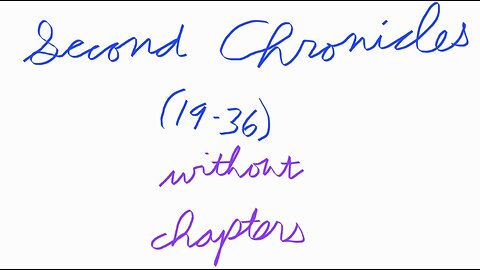 Second Chronicles
(19-36)
without
chapters